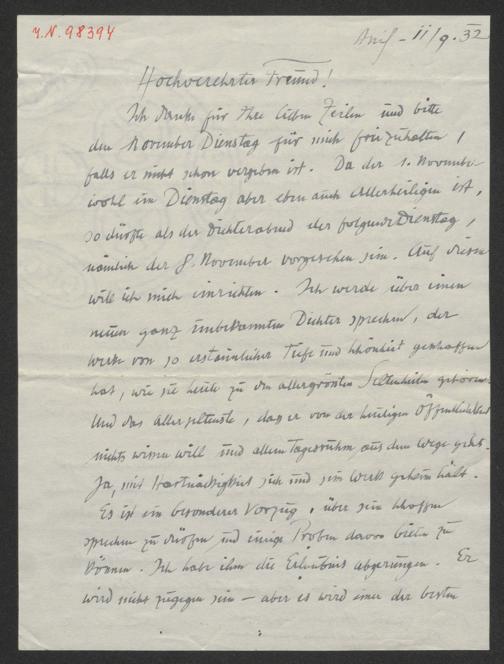 J.N. 98394
Anif - 11/9. 32
Hochverehrter Freund!
Ich danke für Ihre lieben Zeilen und bitte
den November Dienstag für mich freizuhalten,
falls er nicht schon vergeben ist. Da der 1. November
wohl ein Dienstag aber eben auch Allerheiligen ist,
so dürfte als der Dichterabend der folgende Dienstag,
nämlich der 8. November vorgesehen sein. Auf diesen
will ich mich einrichten. Ich werde über einen
neuen ganz unbekannten Dichter sprechen, der
Werke von so erstaunlicher Tiefe und Schönheit geschaffen
hat, wie sie heute zu den allergrössten Seltenheiten gehören.
Und das Allerseltenste, dass er von der heutigen Öffentlichkeit
nichts wissen will und allem Tagesruhm aus dem Wege geht.
Ja, mit Hartnäckigkeit sich und sein Werk geheim hält.
Es ist ein besonderer Vorzug, über sein Schaffen
sprechen zu dürfen und einige Proben davon bieten zu
können. Ich habe ihm die Erlaubnis abgerungen. Er
wird nicht zugegen sein – aber es wird einer der besten